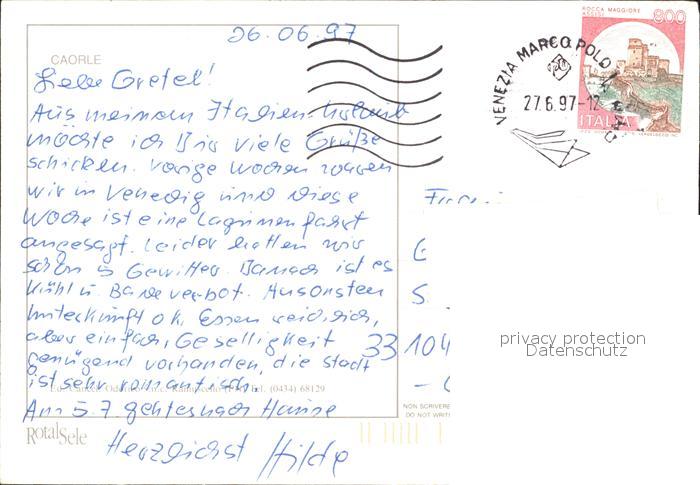 26.06.97
CAORLE
Liebe Gretel!
Aus meinem Italien-Urlaub
möchte ich Dir viele Grüße
schicken. Vorige Woche waren
wir in Venedig und diese
Woche ist eine Lagunenfahrt
angesagt. Leider hatten wir
schon 5 Gewitter. Danach ist es
kühl u. Badeverbot. Ansonsten
Unterkunft o.k. Essen reichlich,
aber einfach, Geselligkeit
genügend vorhanden, die Stadt
ist sehr romantisch.
Tel. (0434) 68129
Am 5.7. geht es nach Hause
Herzlichst Hilde
RotalSele
ROCCA MAGGIORE
ASSISI
800
ITALIA
VENEZIA MARCO POLO
27.6.97-12
33 104
privacy protection
Datenschutz
NON SCRIVERE
DO NOT WRIT